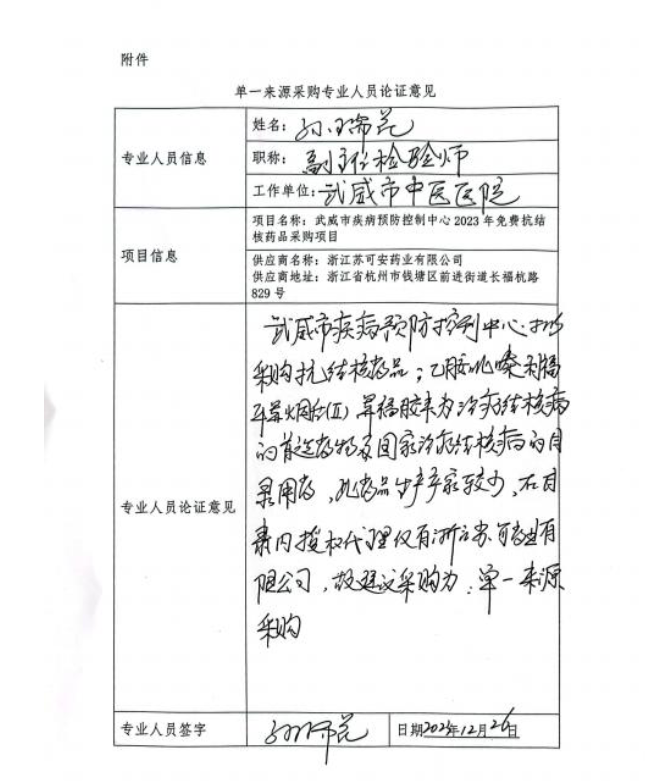 附件
单一来源采购专业人员论证意见
专业人员信息
姓名：孙瑞芸
职称：副主任检验师
工作单位：武威市中医医院
项目信息
项目名称：武威市疾病预防控制中心 2023 年免费抗结
核药品采购项目
供应商名称：浙江苏可安药业有限公司
供应商地址：浙江省杭州市钱塘区前进街道长福杭路
829 号
专业人员论证意见
武威市疾病预防控制中心拟
采购抗结核药品；乙胺吡嗪利福
异烟 (II) 异福胶 为治疗结核病
的首选药物及国家治疗结核病的目
录用药，此药品生产厂家较少，在甘
肃内授权代理仅有浙江苏可安 业有
限公司，故建议采购为：单一来源
采购
专业人员签字
孙瑞芸
日期 2023年12月26日